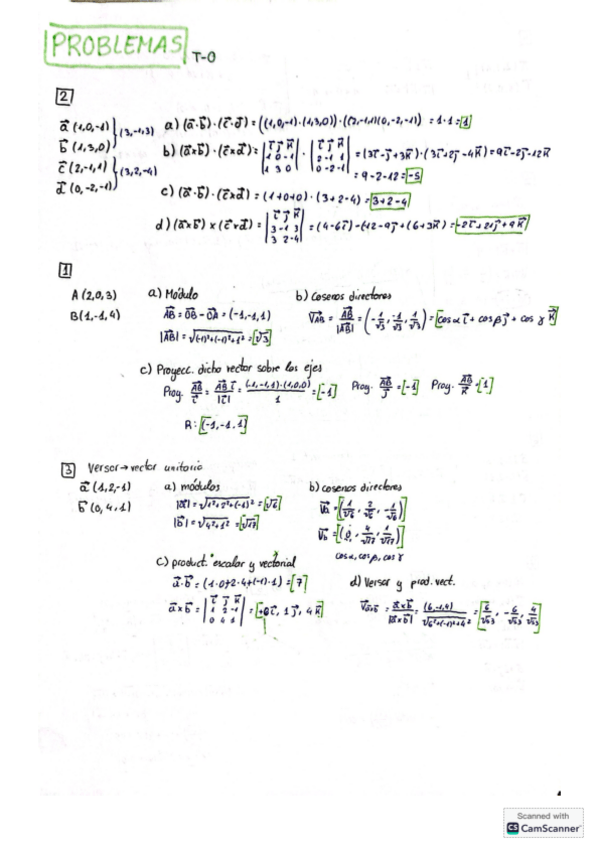 PROBLEMAS T-0
2
a⃗ (1,0,-1)
b⃗ (1,3,0)
(3,-1,3)
c⃗ (2,-1,1)
d⃗ (0,-2,-1)
(3,2,-4)
a) (a⃗·b⃗)·(c⃗·d⃗) = ((1,0,-1)·(1,3,0))·((2,-1,1)(0,-2,-1)) = 1·1 = 1
b) (a⃗xb⃗)·(c⃗xd⃗) = |i⃗ j⃗ k⃗ 1 0 -1 1 3 0| · |i⃗ j⃗ k⃗ 2 -1 1 0 -2 -1| = (3i⃗-j⃗+3k⃗)·(3i⃗+2j⃗-4k⃗) = 9i⃗-2j⃗-12k⃗
= 9-2-12 = -5
c) (a⃗·b⃗)·(c⃗xd⃗) = (1+0+0)·(3+2-4) = 3+2-4
d) (a⃗xb⃗)x(c⃗xd⃗) = |i⃗ j⃗ k⃗ 3 -1 3 3 2 -4| = (4-6i⃗)-(-12-9j⃗+(6+3k⃗) = -2i⃗+21j⃗+9k⃗
1
A(2,0,3)
B(1,-1,4)
a) Módulo
AB⃗ = OB⃗ - OA⃗ = (-1,-1,1)
|AB⃗| = √(-1)²+(-1)²+1² = √3
b) Cosenos directores
V⃗AB = AB⃗/|AB⃗| = (-1/√3, -1/√3, 1/√3) = cosα i⃗ + cosβ j⃗ + cos γ k⃗
c) Proyecc. dicho vector sobre los ejes
Proy. AB⃗/i⃗ = AB⃗ i⃗/|i⃗| = (-1,-1,1)·(1,0,0)/1 = [-1] Proy. AB⃗/j⃗ = [-1] Proy. AB⃗/k⃗ = [1]
R: (-1,-1,1)
3 Versor → vector unitario
a⃗ (1,2,-1)
b⃗ (0,4,1)
a) módulos
|a⃗| = √1²+2²+(-1)² = √6
|b⃗| = √4²+1² = √17
b) cosenos directores
V⃗a = (1/√6, 2/√6, -1/√6)
V⃗b = (0, 4/√17, 1/√17)
cosα, cosβ, cosγ
c) product. escalar y vectorial
a⃗·b⃗ = (1·0+2·4+(-1)·1) = 7
a⃗xb⃗ = |i⃗ j⃗ k⃗ 1 2 -1 0 4 1| = i⃗, 1j⃗, 4k⃗
d) Versor y prod. vect.
V⃗axb = a⃗xb⃗/|a⃗xb⃗| = (6,-1,4)/√6²+(-1)²+4² = 6/√53, -6/√53, 4/√53
1
Scanned with
CS CamScanner